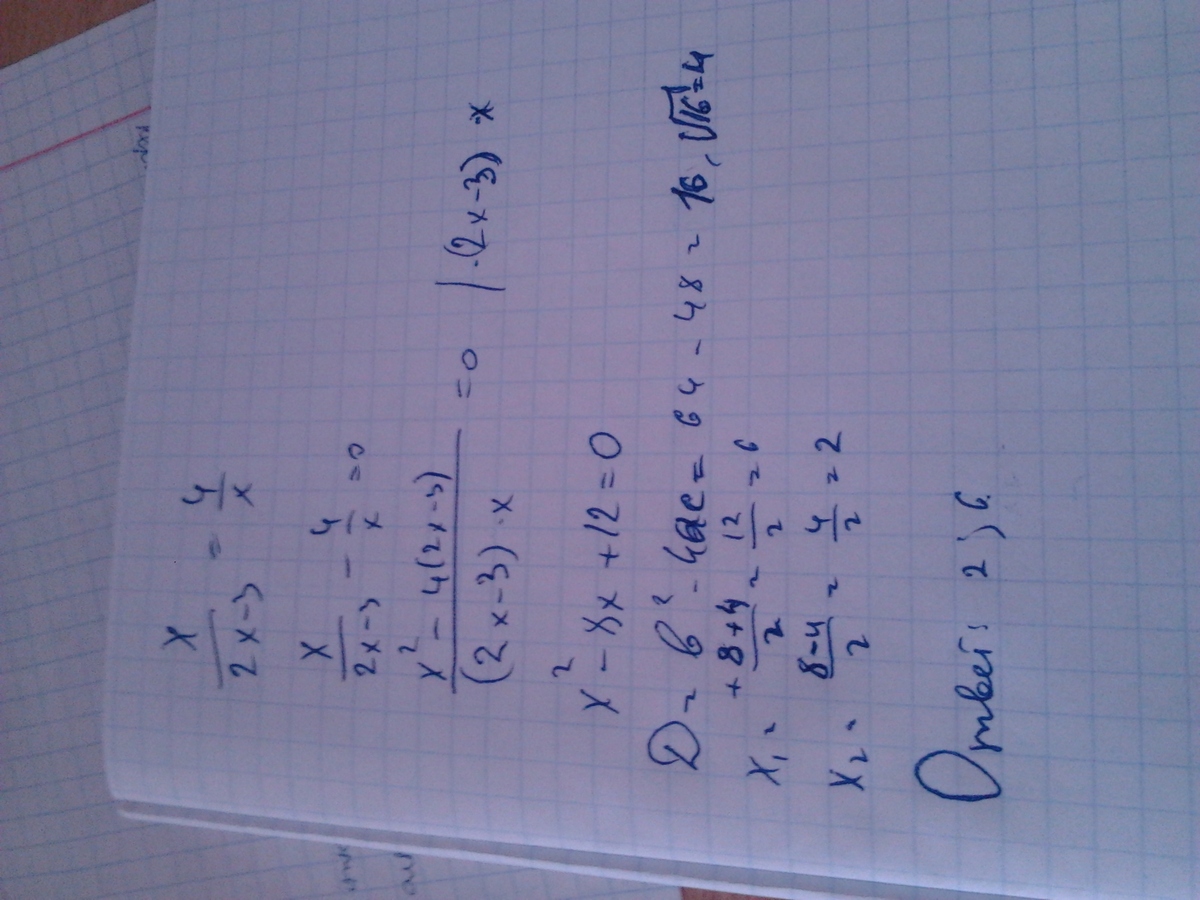 x/(2x-3) = 4/x
x/(2x-3) - 4/x = 0
(x² - 4(2x-3))/((2x-3)·x) = 0 | ·(2x-3)·x
x² - 8x + 12 = 0
D = b² - 4ac = 64 - 48 = 16, √16 = 4
x₁ = (+8+4)/2 = 12/2 = 6
x₂ = (8-4)/2 = 4/2 = 2
Ответ: 2; 6.